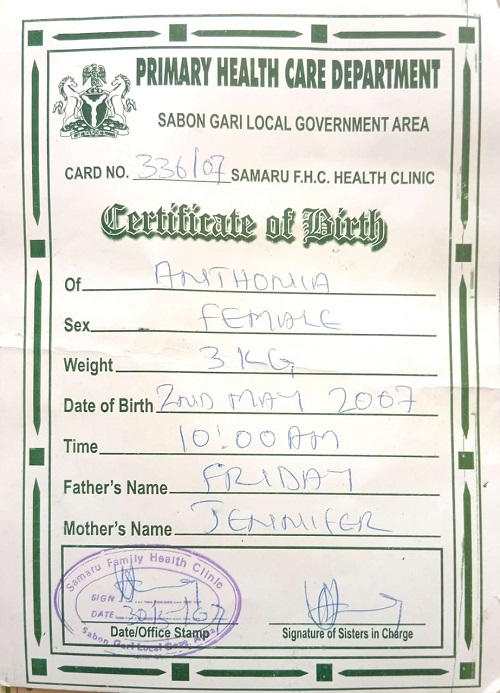 PRIMARY HEALTH CARE DEPARTMENT
SABON GARI LOCAL GOVERNMENT AREA
CARD NO. 336/07 SAMARU F.H.C. HEALTH CLINIC
Certificate of Birth
Of ANTHONIA
Sex FEMALE
Weight 3 KG
Date of Birth 2ND MAY 2007
Time 10:00 AM
Father's Name FRIDAY
Mother's Name JENNIFER
Samaru Family Health Clinic
SIGN
DATE
Sabon Gari Local Govt. Area
Date/Office Stamp
Signature of Sisters in Charge